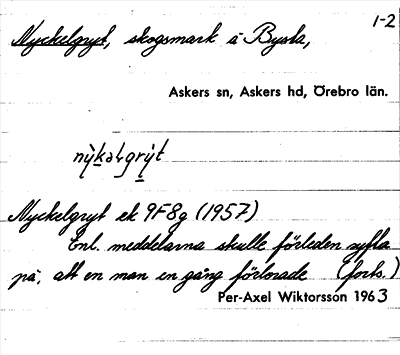 1-2
Nyckelgryt, skogsmark å Bysta,
Askers sn, Askers hd, Örebro län.
nỳkəɫgrýt
Nyckelgryt ek 9F8g (1957)
Enl. meddelarna skulle förleden syfta
på, att en man en gång förlorade (forts.)
Per-Axel Wiktorsson 1963